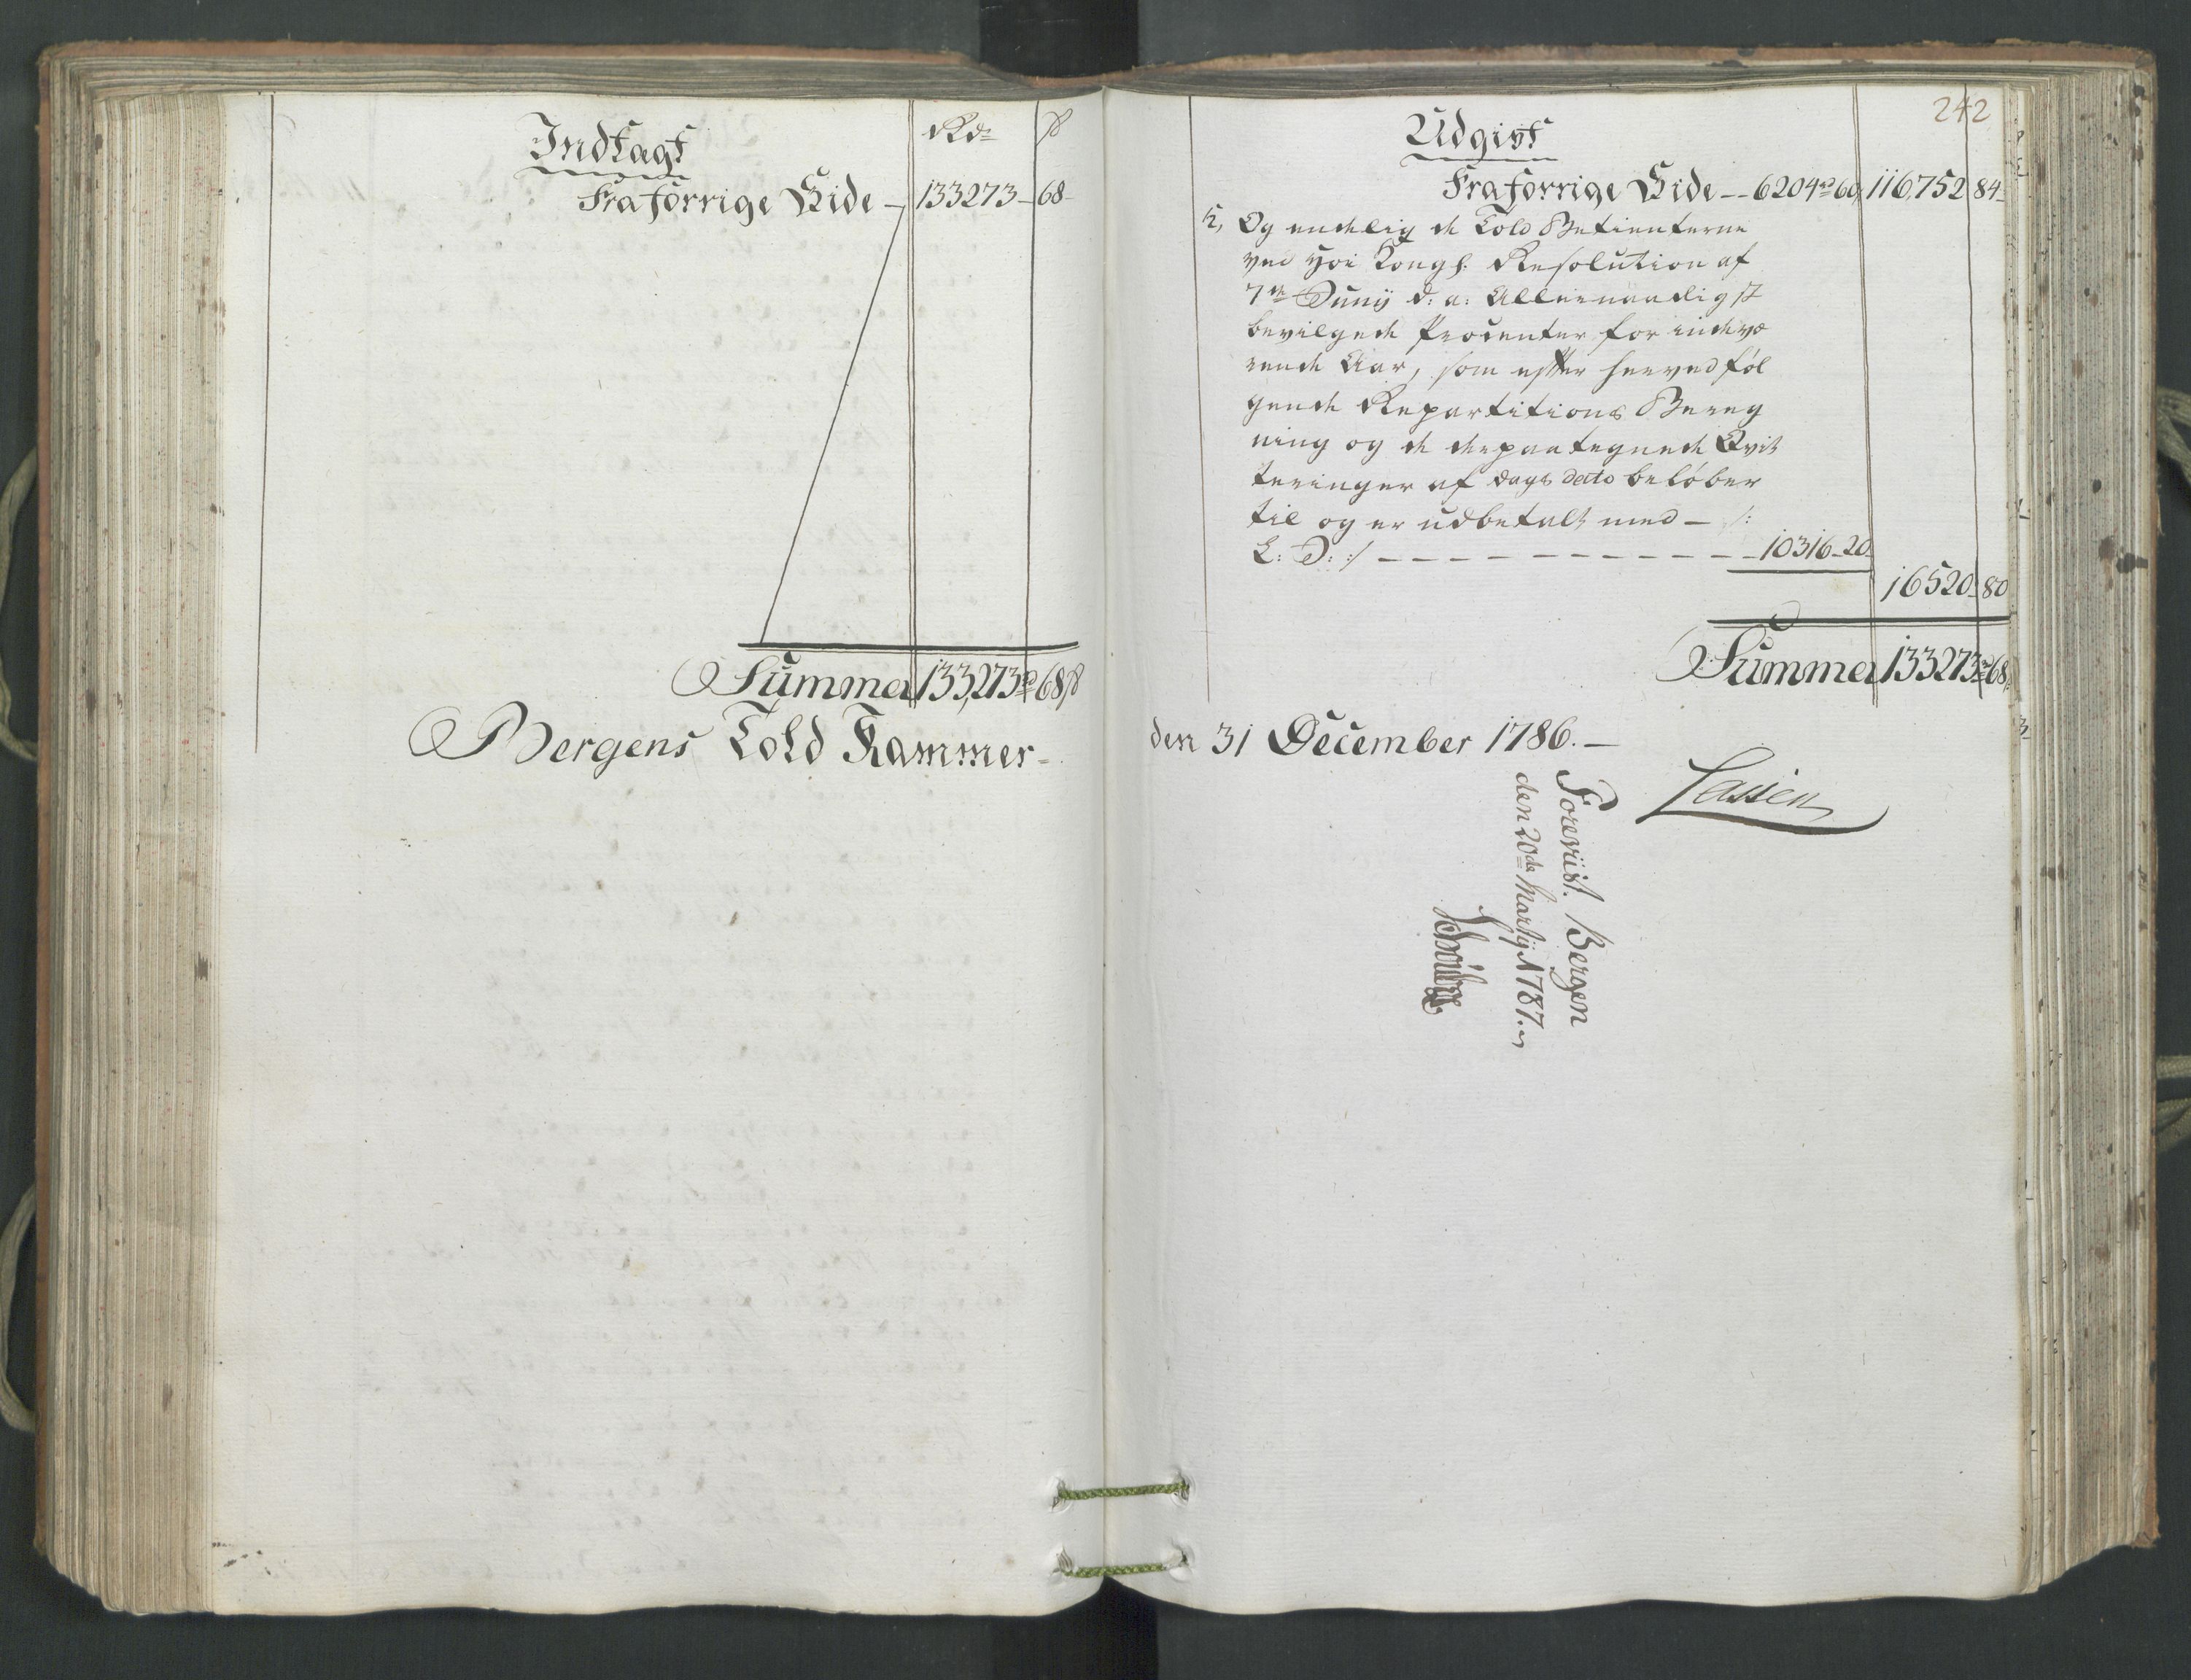 Indtægt
Rdr ß
Fra forrige Side — 133273 — 68 -
Summa 133,273rd 68ß
Bergens Told Kammer -
242
Udgivt
Fra forrige Side -- 6204rd 60, 116,752 84-
5, Og endelig de Told Betienterne
ved høi Kongl: Resolution af
7de Junij d: a: Allernaadigst
bevilgede Procenter for indevæ
rende Aar, som efter herved føl
gende Repartitions Bereg
ning og de derpaategnede Qvit
teringer af dags dato beløber
til og er udbetalt med — /:
L: D: :/ — — — — — — — — — — 10316 - 20
16520 - 80
Summa 133273rd 68
den 31 December 1786. —
Lassen
Foreviist. Bergen
den 20de Martij 1787.